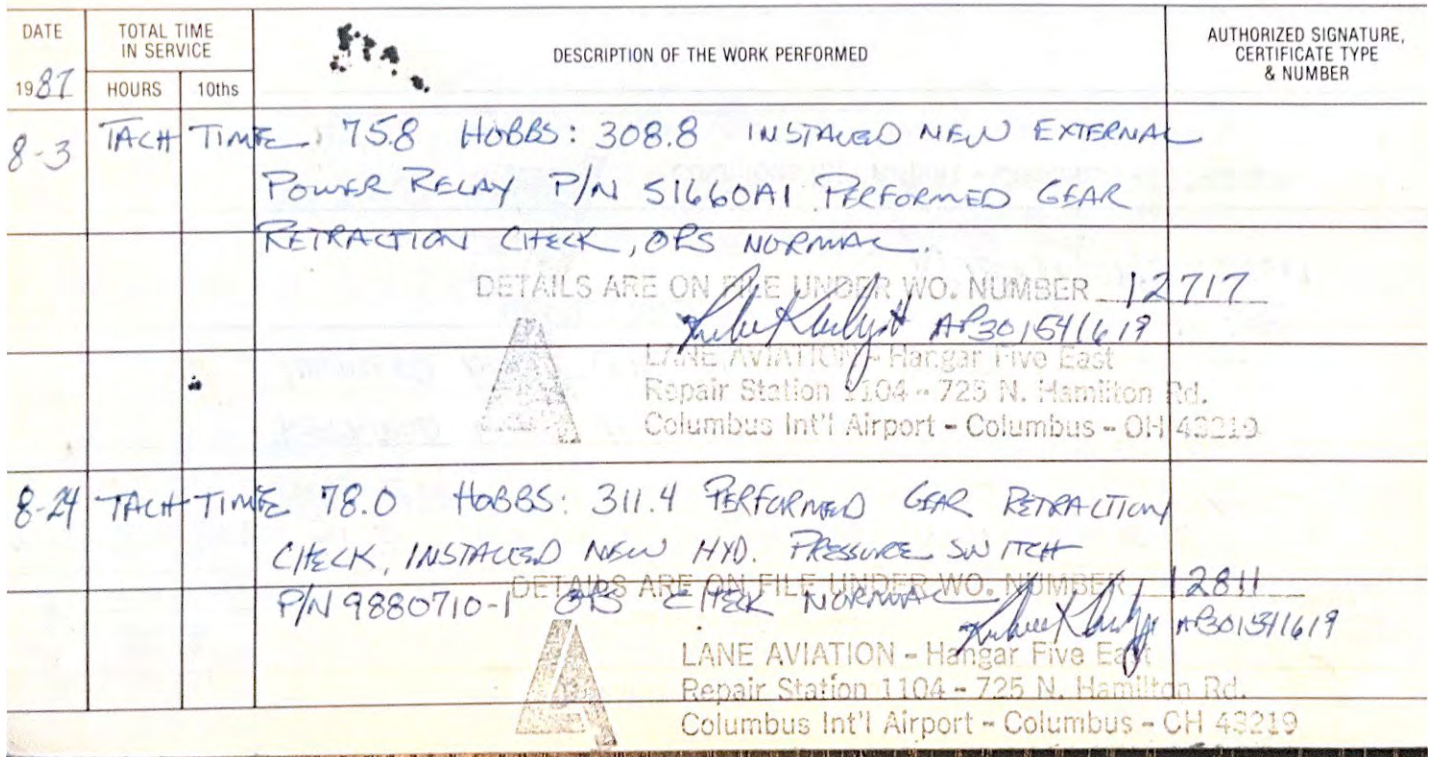 DATE
TOTAL TIME
IN SERVICE
DESCRIPTION OF THE WORK PERFORMED
AUTHORIZED SIGNATURE,
CERTIFICATE TYPE
& NUMBER
1987
HOURS 10ths
8-3 TACH TIME 75.8 HOBBS: 308.8 INSTALLED NEW EXTERNAL
POWER RELAY P/N S1660A1 PERFORMED GEAR
RETRACTION CHECK, OPS NORMAL.
DETAILS ARE ON FILE UNDER WO. NUMBER 12717
AP301541619
LANE AVIATION - Hangar Five East
Repair Station 1104 - 725 N. Hamilton Rd.
Columbus Int'l Airport - Columbus - OH 43219
8-24 TACH TIME 78.0 HOBBS: 311.4 PERFORMED GEAR RETRACTION
CHECK, INSTALLED NEW HYD. PRESSURE SWITCH
DETAILS ARE ON FILE UNDER WO. NUMBER 12811
P/N 9880710-1 OPS CHECK NORMAL
AP301541619
LANE AVIATION - Hangar Five East
Repair Station 1104 - 725 N. Hamilton Rd.
Columbus Int'l Airport - Columbus - OH 43219